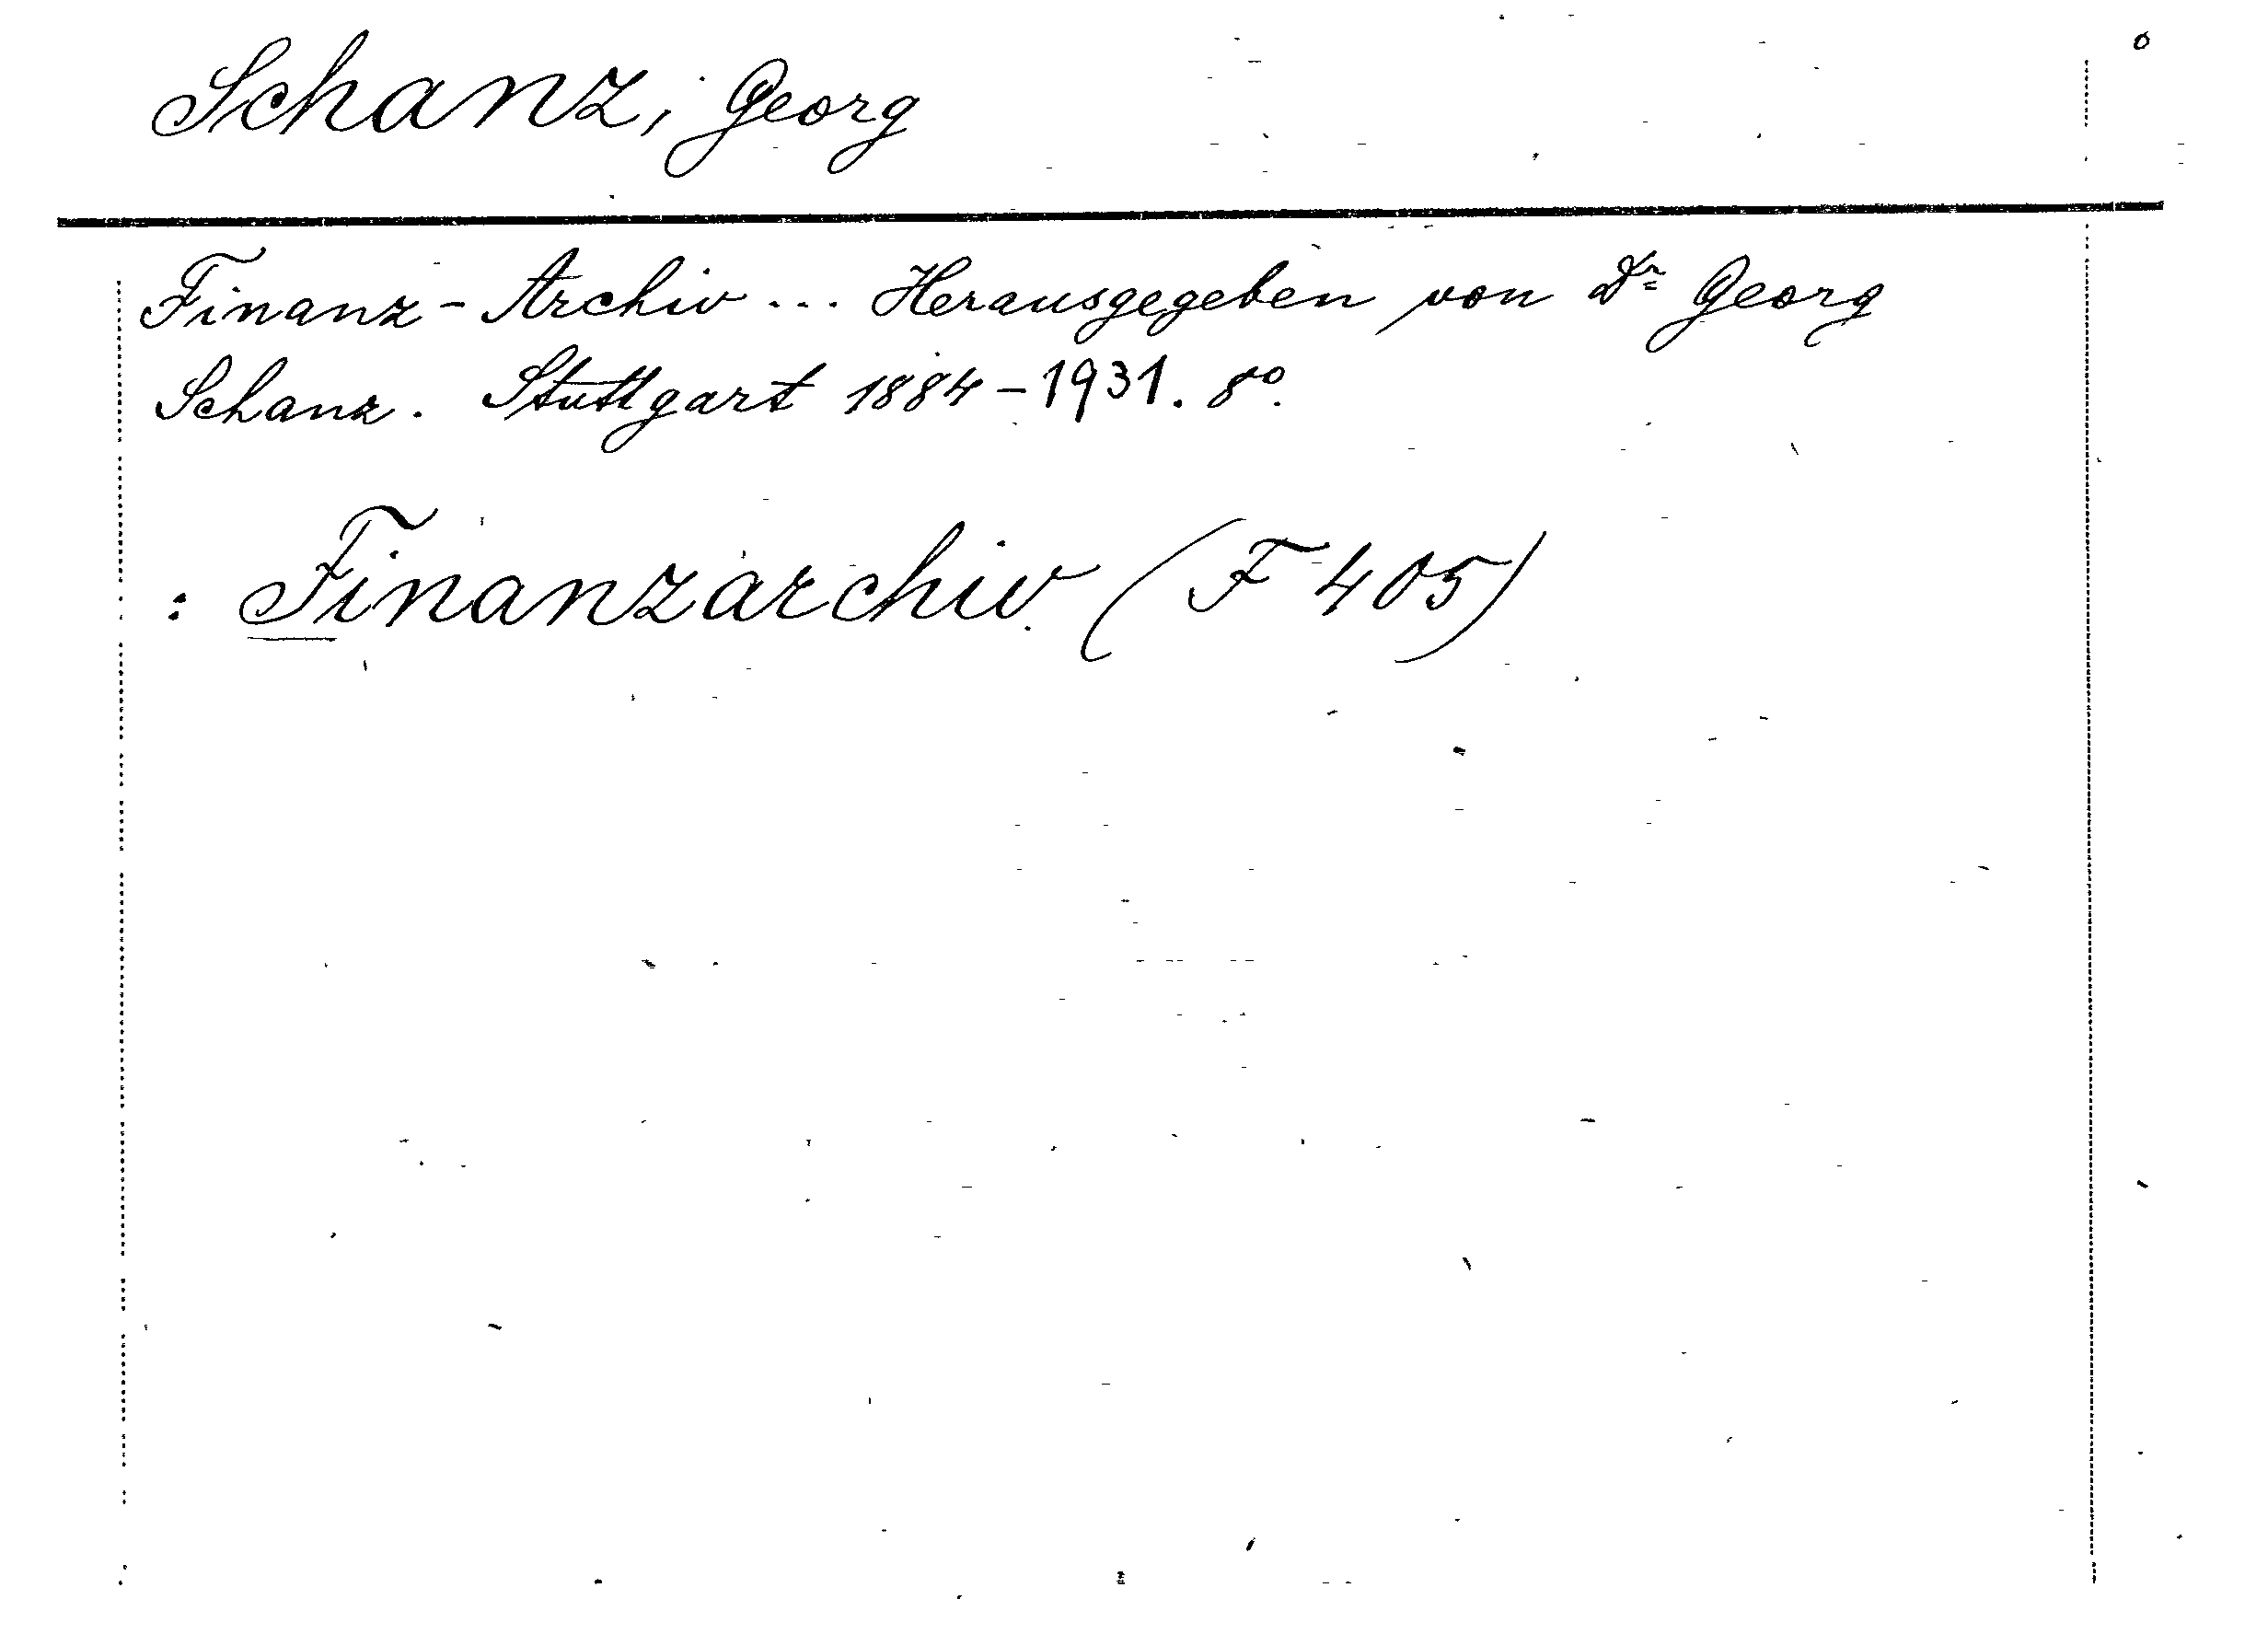 Schanz, Georg
Finanz-Archiv ... Herausgegeben von Dr Georg
Schanz. Stuttgart 1884-1931. 8º.
: Finanzarchiv (F 405)